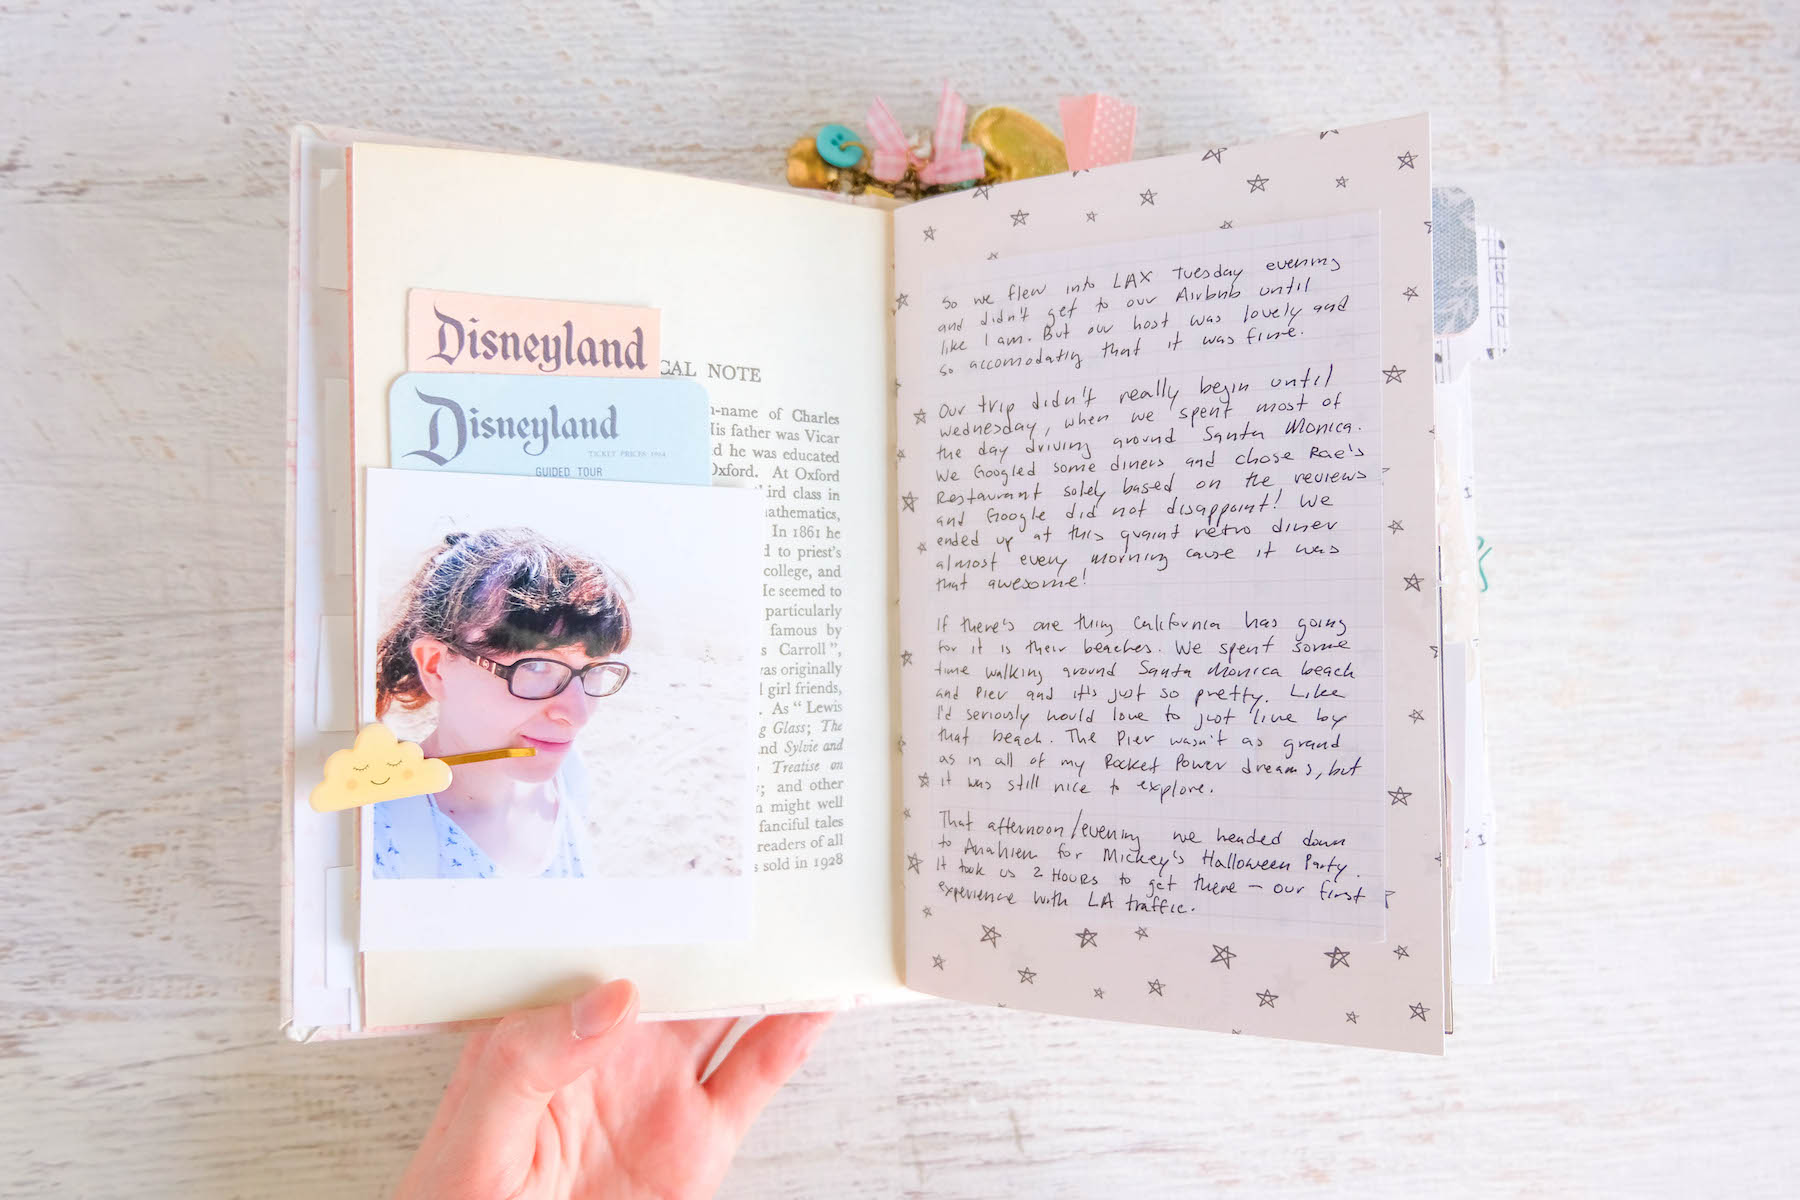 Disneyland
Disneyland
TICKET PRICES 1964
GUIDED TOUR
CAL NOTE
-name of Charles
His father was Vicar
d he was educated
Oxford. At Oxford
third class in
athematics,
In 1861 he
d to priest's
college, and
He seemed to
particularly
famous by
s Carroll",
was originally
l girl friends,
. As "Lewis
g Glass; The
nd Sylvie and
Treatise on
; and other
n might well
fanciful tales
readers of all
s sold in 1928
So we flew into LAX Tuesday evening
and didn't get to our Airbnb until
like 1am. But our host was lovely and
so accomodating that it was fine.
Our trip didn't really begin until
Wednesday, when we spent most of
the day driving around Santa Monica.
We Googled some diners and chose Rae's
Restaurant solely based on the reviews
and Google did not disappoint! We
ended up at this quaint retro diner
almost every morning cause it was
that awesome!
If there's one thing California has going
for it is their beaches. We spent some
time walking around Santa Monica beach
and Pier and it's just so pretty. Like
I'd seriously would love to just live by
that beach. The Pier wasn't as grand
as in all of my Rocket Power dreams, but
it was still nice to explore.
That afternoon/evening we headed down
to Anahiem for Mickey's Halloween Party.
It took us 2 HOURS to get there – our first
experience with LA traffic.